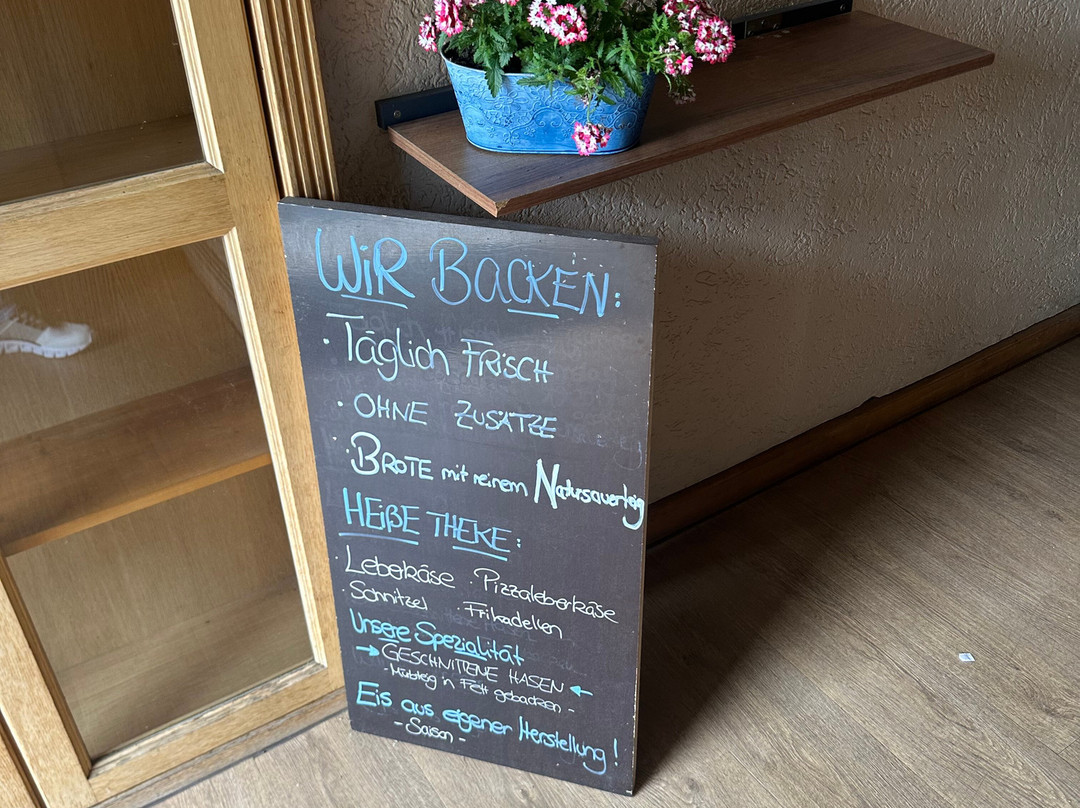 WiR BACKEN:
· Täglich FRiSCH
· OHNE ZUSÄTZE
· BROTE mit reinem Natursauerteig
HEIßE THEKE:
· Leberkäse · Pizzaleberkäse
· Schnitzel · Frikadellen
Unsere Spezialität
→ GESCHNITTENE HASEN ←
- Mürbteig in Fett gebacken -
Eis aus eigener Herstellung!
- Saison -